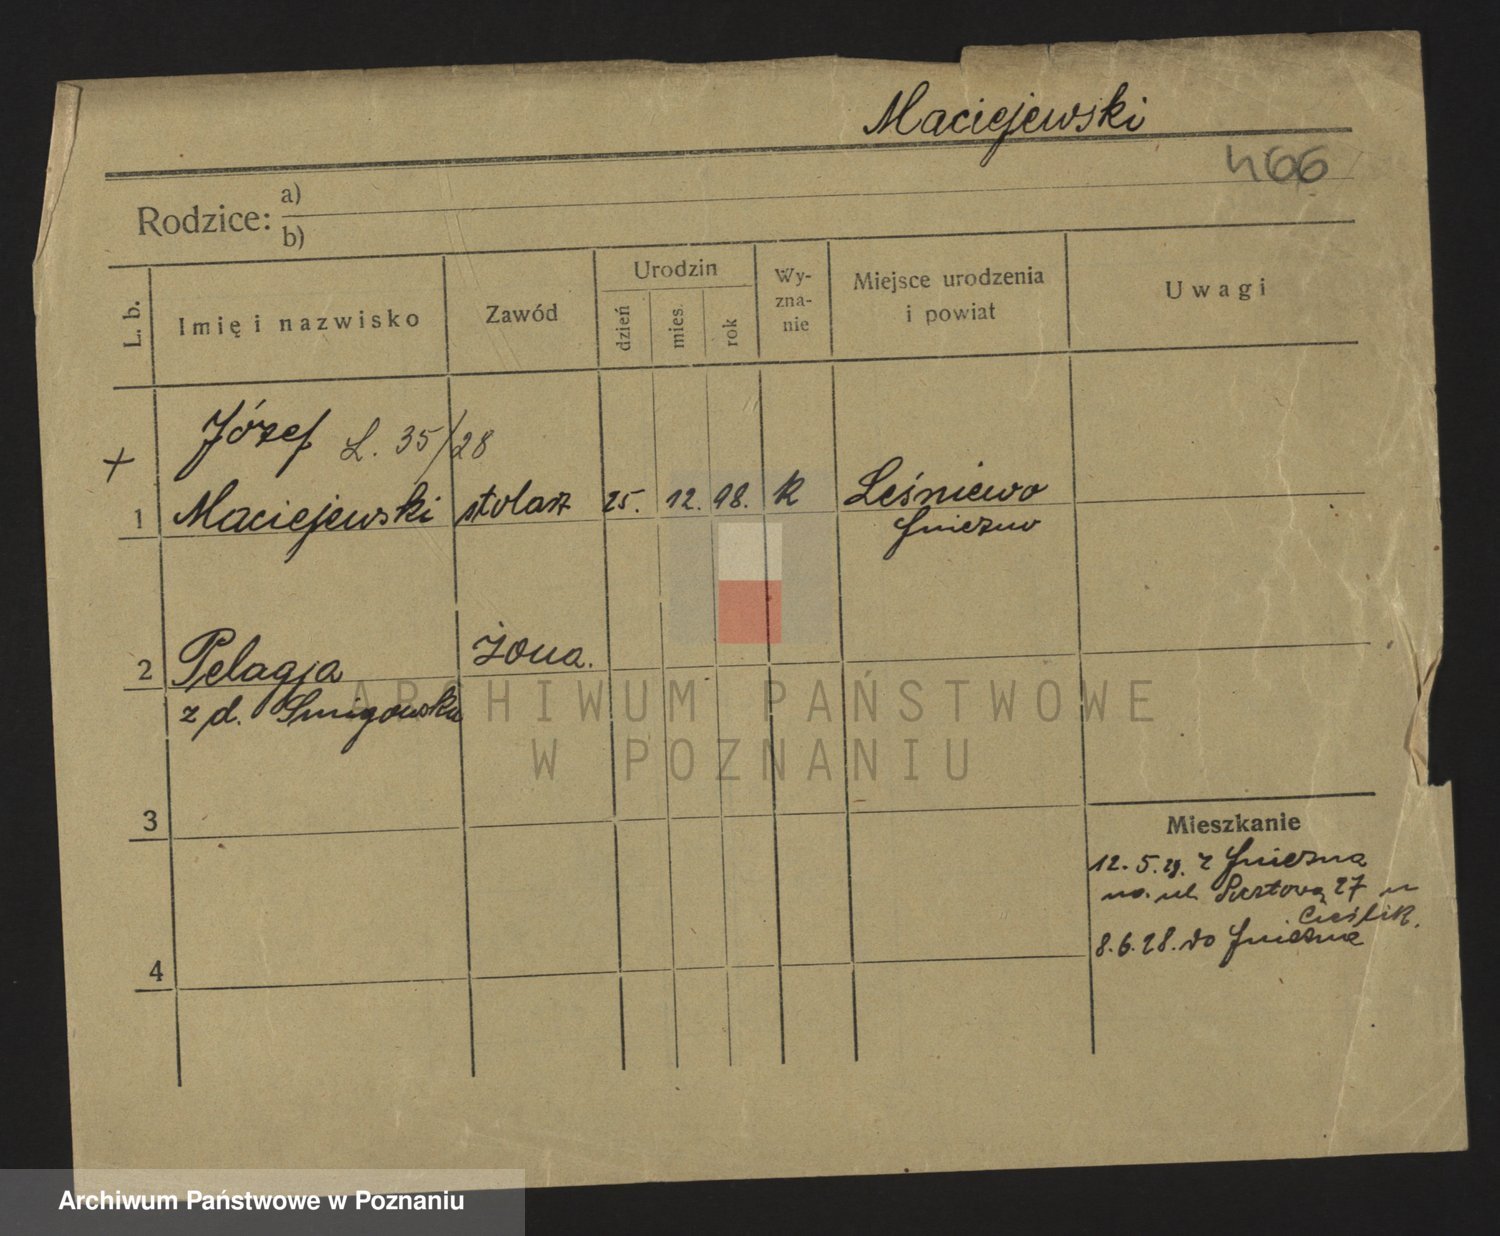 Maciejewski
466
Rodzice: a)
b)
L. b.
Imię i nazwisko
Zawód
Urodzin
dzień
mies.
rok
Wy-
zna-
nie
Miejsce urodzenia
i powiat
Uwagi
+
Józef L. 35/28
1 Maciejewski stolarz 25. 12. 98. k Leśniewo
Gniezno
2 Pelagja żona.
z d. Śmigowska
ARCHIWUM PAŃSTWOWE
W POZNANIU
3
Mieszkanie
12. 5. z Gniezna
na ul. 27 u
Cieślik.
8. 6. 28. do Gniezna
4
Archiwum Państwowe w Poznaniu